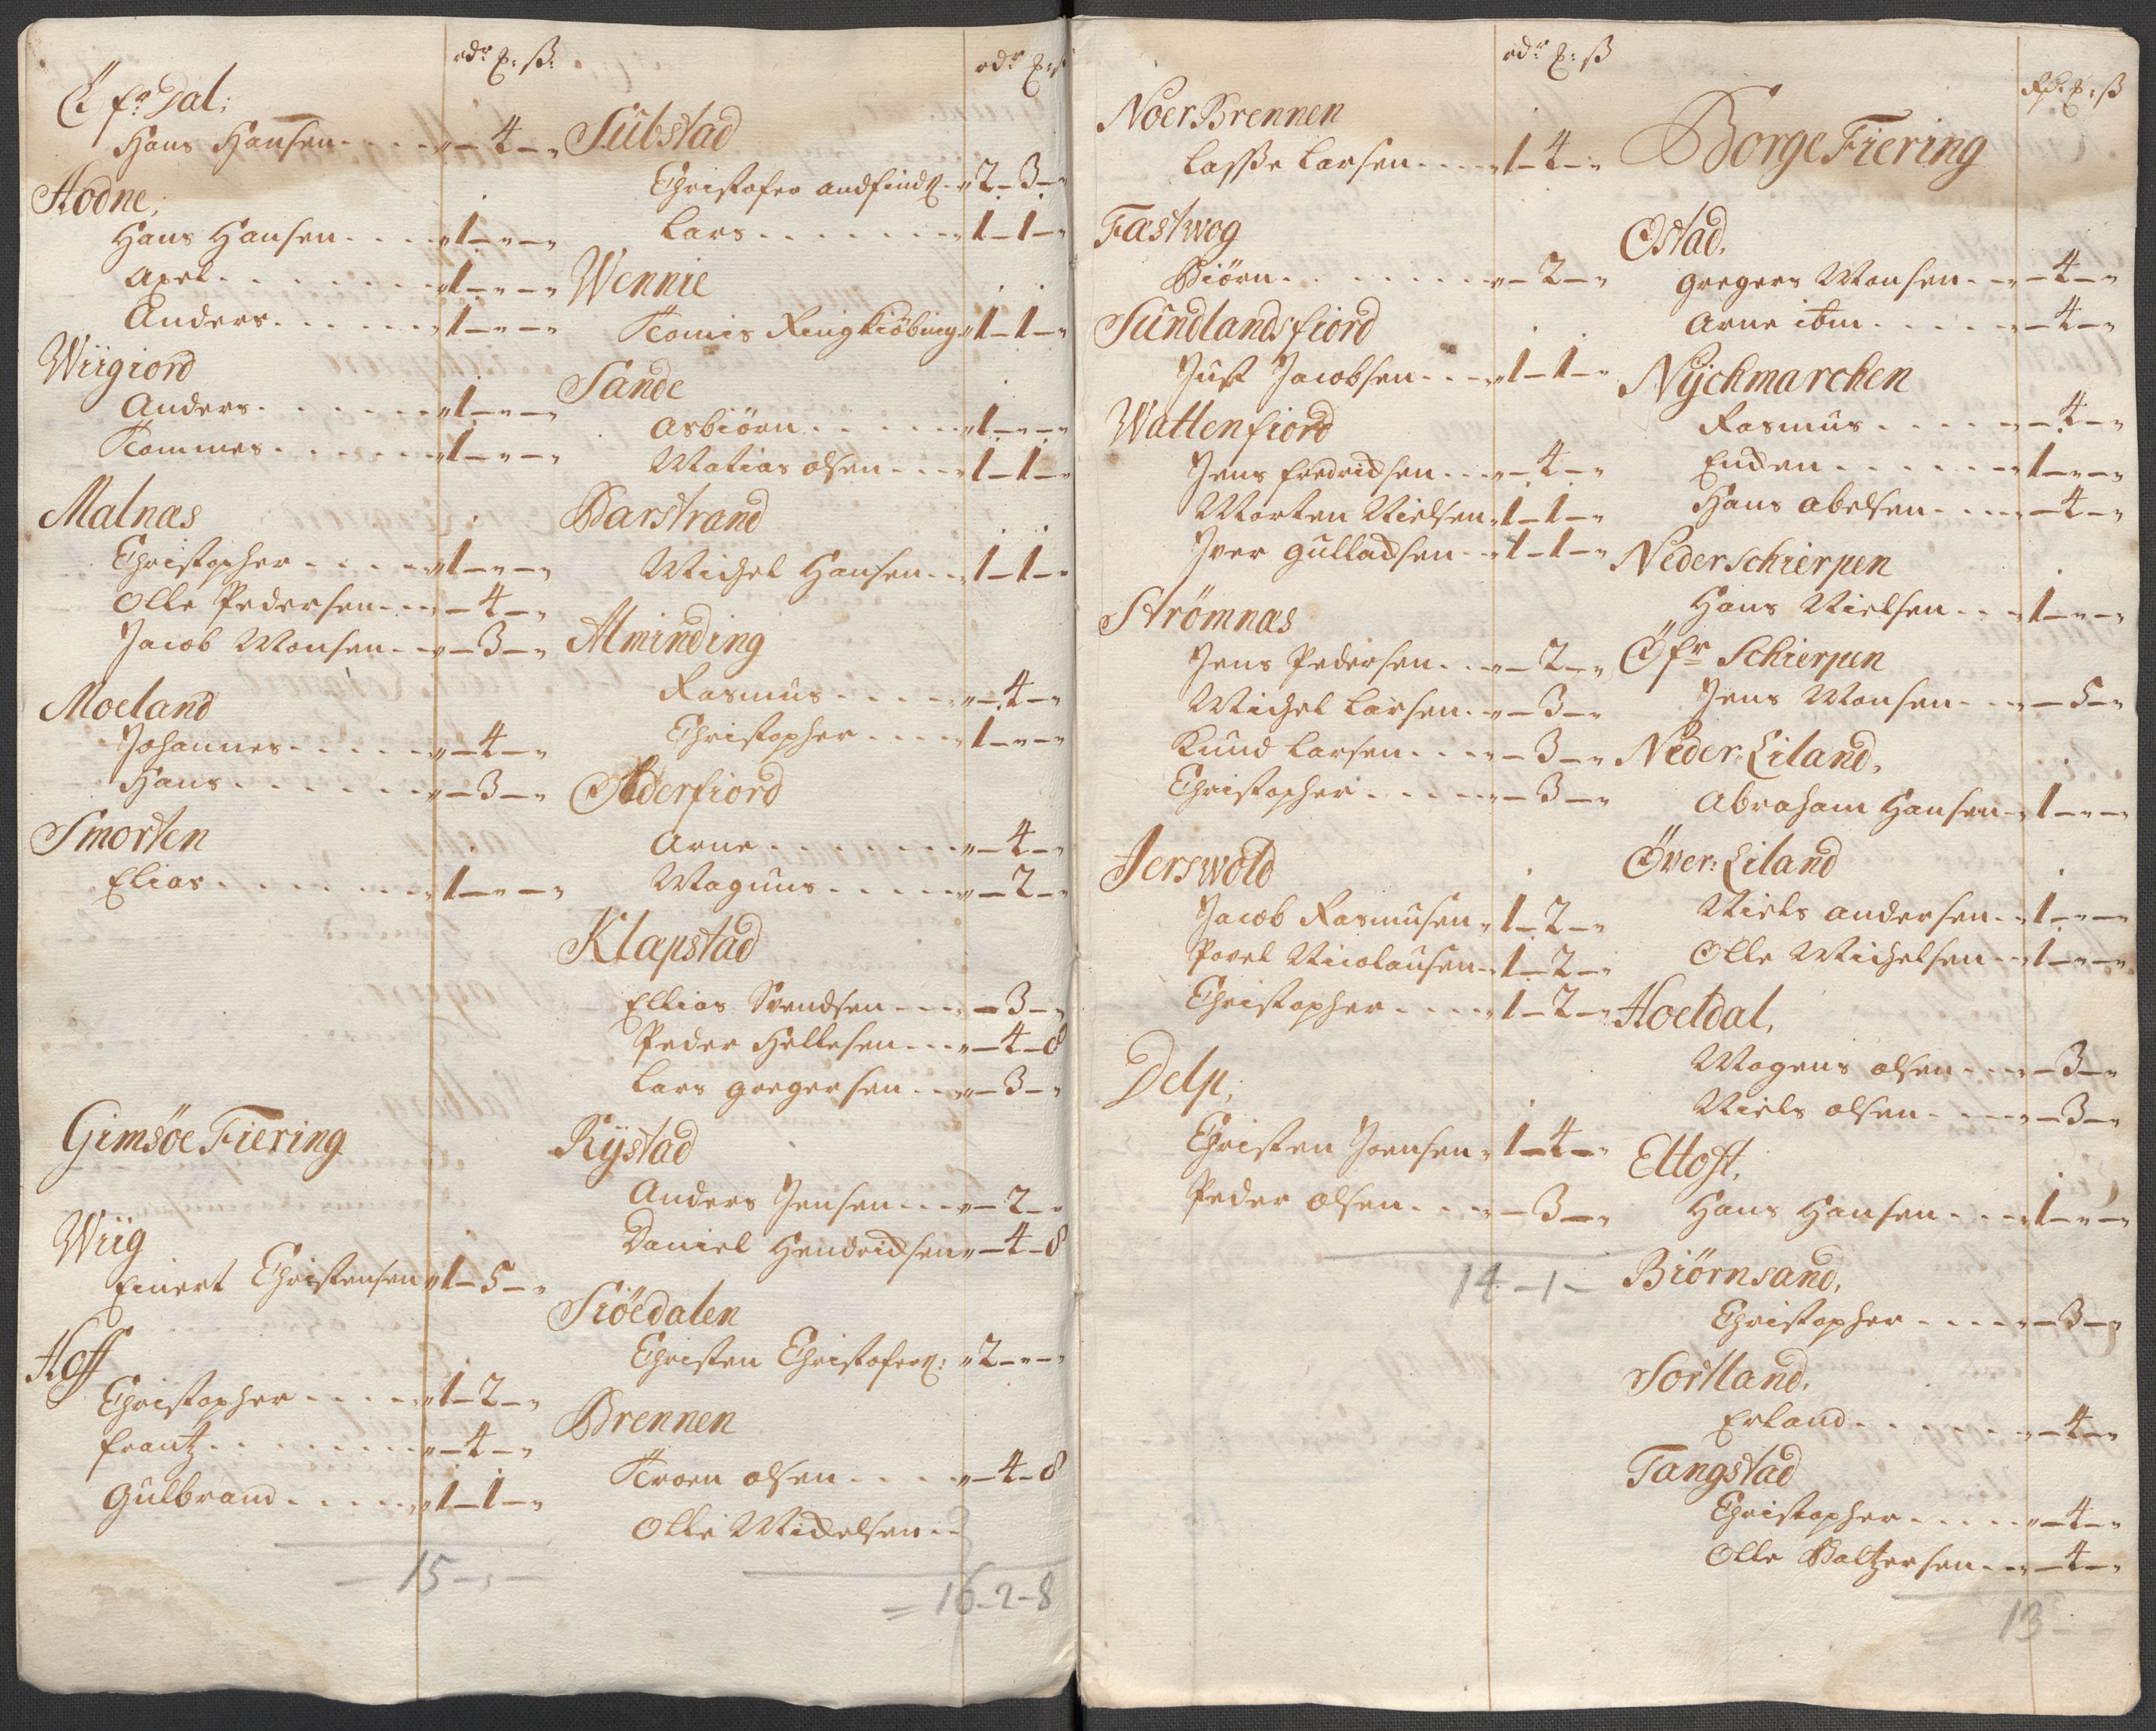 odr ꝑ: ß:
Öfr Dal;
Hans Hansen - - - - „ - 4 - „
Hodne;
Hans Hansen - - - - „ 1 - „ - „
Axel - - - - - - „ 1 - „ - „
Anders - - - - - - „ 1 - „ - „
Wiigiord
Anders - - - - - - „ 1 - „ - „
Hommes - - - - - - „ 1 - „ - „
Malnæs
Christopher - - - - „ 1 - „ - „
Olle Pedersen - - - „ - 4 - „
Jacob Monsen - - „ - 3 - „
Moeland
Johannes - - - - - „ - 4 - „
Hans - - - - - - „ - 3 - „
Smorten
Elias - - - - - - - „ 1 - „ - „
Gimsøe Fiering
Wiig
Einert Christensen „ 1 - 5 - „
Hoff
Christopher - - - - „ 1 - 2 - „
Frantz - - - - - - - „ - 4 - „
Gulbrand - - - - - „ 1 - 1 - „
- 15 - „ -
odr ꝑ: ß
Sulstad
Christofer andfind: - „ 2 - 3 - „
Lars - - - - - - - - „ 1 - 1 - „
Wennie
Tomis Ringkiöbing - „ 1 - 1 - „
Sande
Asbiörn - - - - - - „ 1 - „ - „
Matias olsen - - - „ 1 - 1 - „
Barstrand
Michel Hansen - - „ 1 - 1 - „
Alminding
Rasmus - - - - - „ - 4 - „
Christopher - - - - „ 1 - „ - „
Olderfiord
Arne - - - - - - - „ - 4 - „
Magnus - - - - - „ - 2 - „
Klapstad
Ellias Svendsen - - - „ - 3 - „
Peder Hellesen - - - „ - 4 - 8
Lars Gregersen - - „ - 3 - „
Rÿstad
Anders Jensen - - - „ - 2 - „
Daniel Hendrichsen „ - 4 - 8
Siöedalen
Christen Christofer: „ 2 - „ - „
Brennen
Troen olsen - - - - „ - 4 - 8
Olle Michelsen - -
= 16 - 2 - 8
odr ꝑ: ß
Noer Brennen
Lasse Larsen - - - - „ 1 - 4 - „
Fæstwog
Biörn - - - - - - - - „ - 2 - „
Sundlandsfiord
Just Jacobsen - - - „ 1 - 1 - „
Wattenfiord
Jens fredrichsen - - „ - 4 - „
Morten Nielsen „ 1 - 1 - „
Iver Gulladsen - „ 1 - 1 - „
Strömnæs
Jens Pedersen - - „ - 2 - „
Michel Larsen - „ - 3 - „
Knud Larsen - - - „ - 3 - „
Christopher - - - - - „ - 3 - „
Jerswold
Jacob Rasmusen „ 1 - 2 - „
Povel Nicolausen - „ 1 - 2 - „
Christopher - - - - „ 1 - 2 - „
Delp;
Christen Joensen „ 1 - 4 - „
Peder olsen - - - „ - 3 - „
14 - 1 -
Rdr ꝑ: ß
Borge Fiering
Ostad,
Gregers Monsen - - „ - 4 - „
Arne ibm - - - - - „ - 4 - „
Nÿckmarcken
Rasmus - - - - - „ - 4 - „
Enden - - - - - - „ 1 - „ - „
Hans Abelsen - - - „ - 4 - „
Nederschierpen
Hans Nielsen - - - „ 1 - „ - „
Öfr Schierpen
Jens Monsen - - - „ - 5 - „
Neder: Eiland,
Abraham Hansen - „ 1 - „ - „
Över: Eiland
Niels Andersen - - „ 1 - „ - „
Olle Michelsen - - „ 1 - „ - „
Hoeldal,
Mogens olsen - - - „ - 3 - „
Niels olsen - - - - „ - 3 - „
Eltoft,
Hans Hansen - - - - „ 1 - „ - „
Biörnsand,
Christopher - - - - „ - 3 - „
Sortland,
Erland - - - - - - „ - 4 - „
Tangstad
Christopher - - - - - „ - 4 - „
Olle Baltzersen - - „ - 4 - „
13 - -